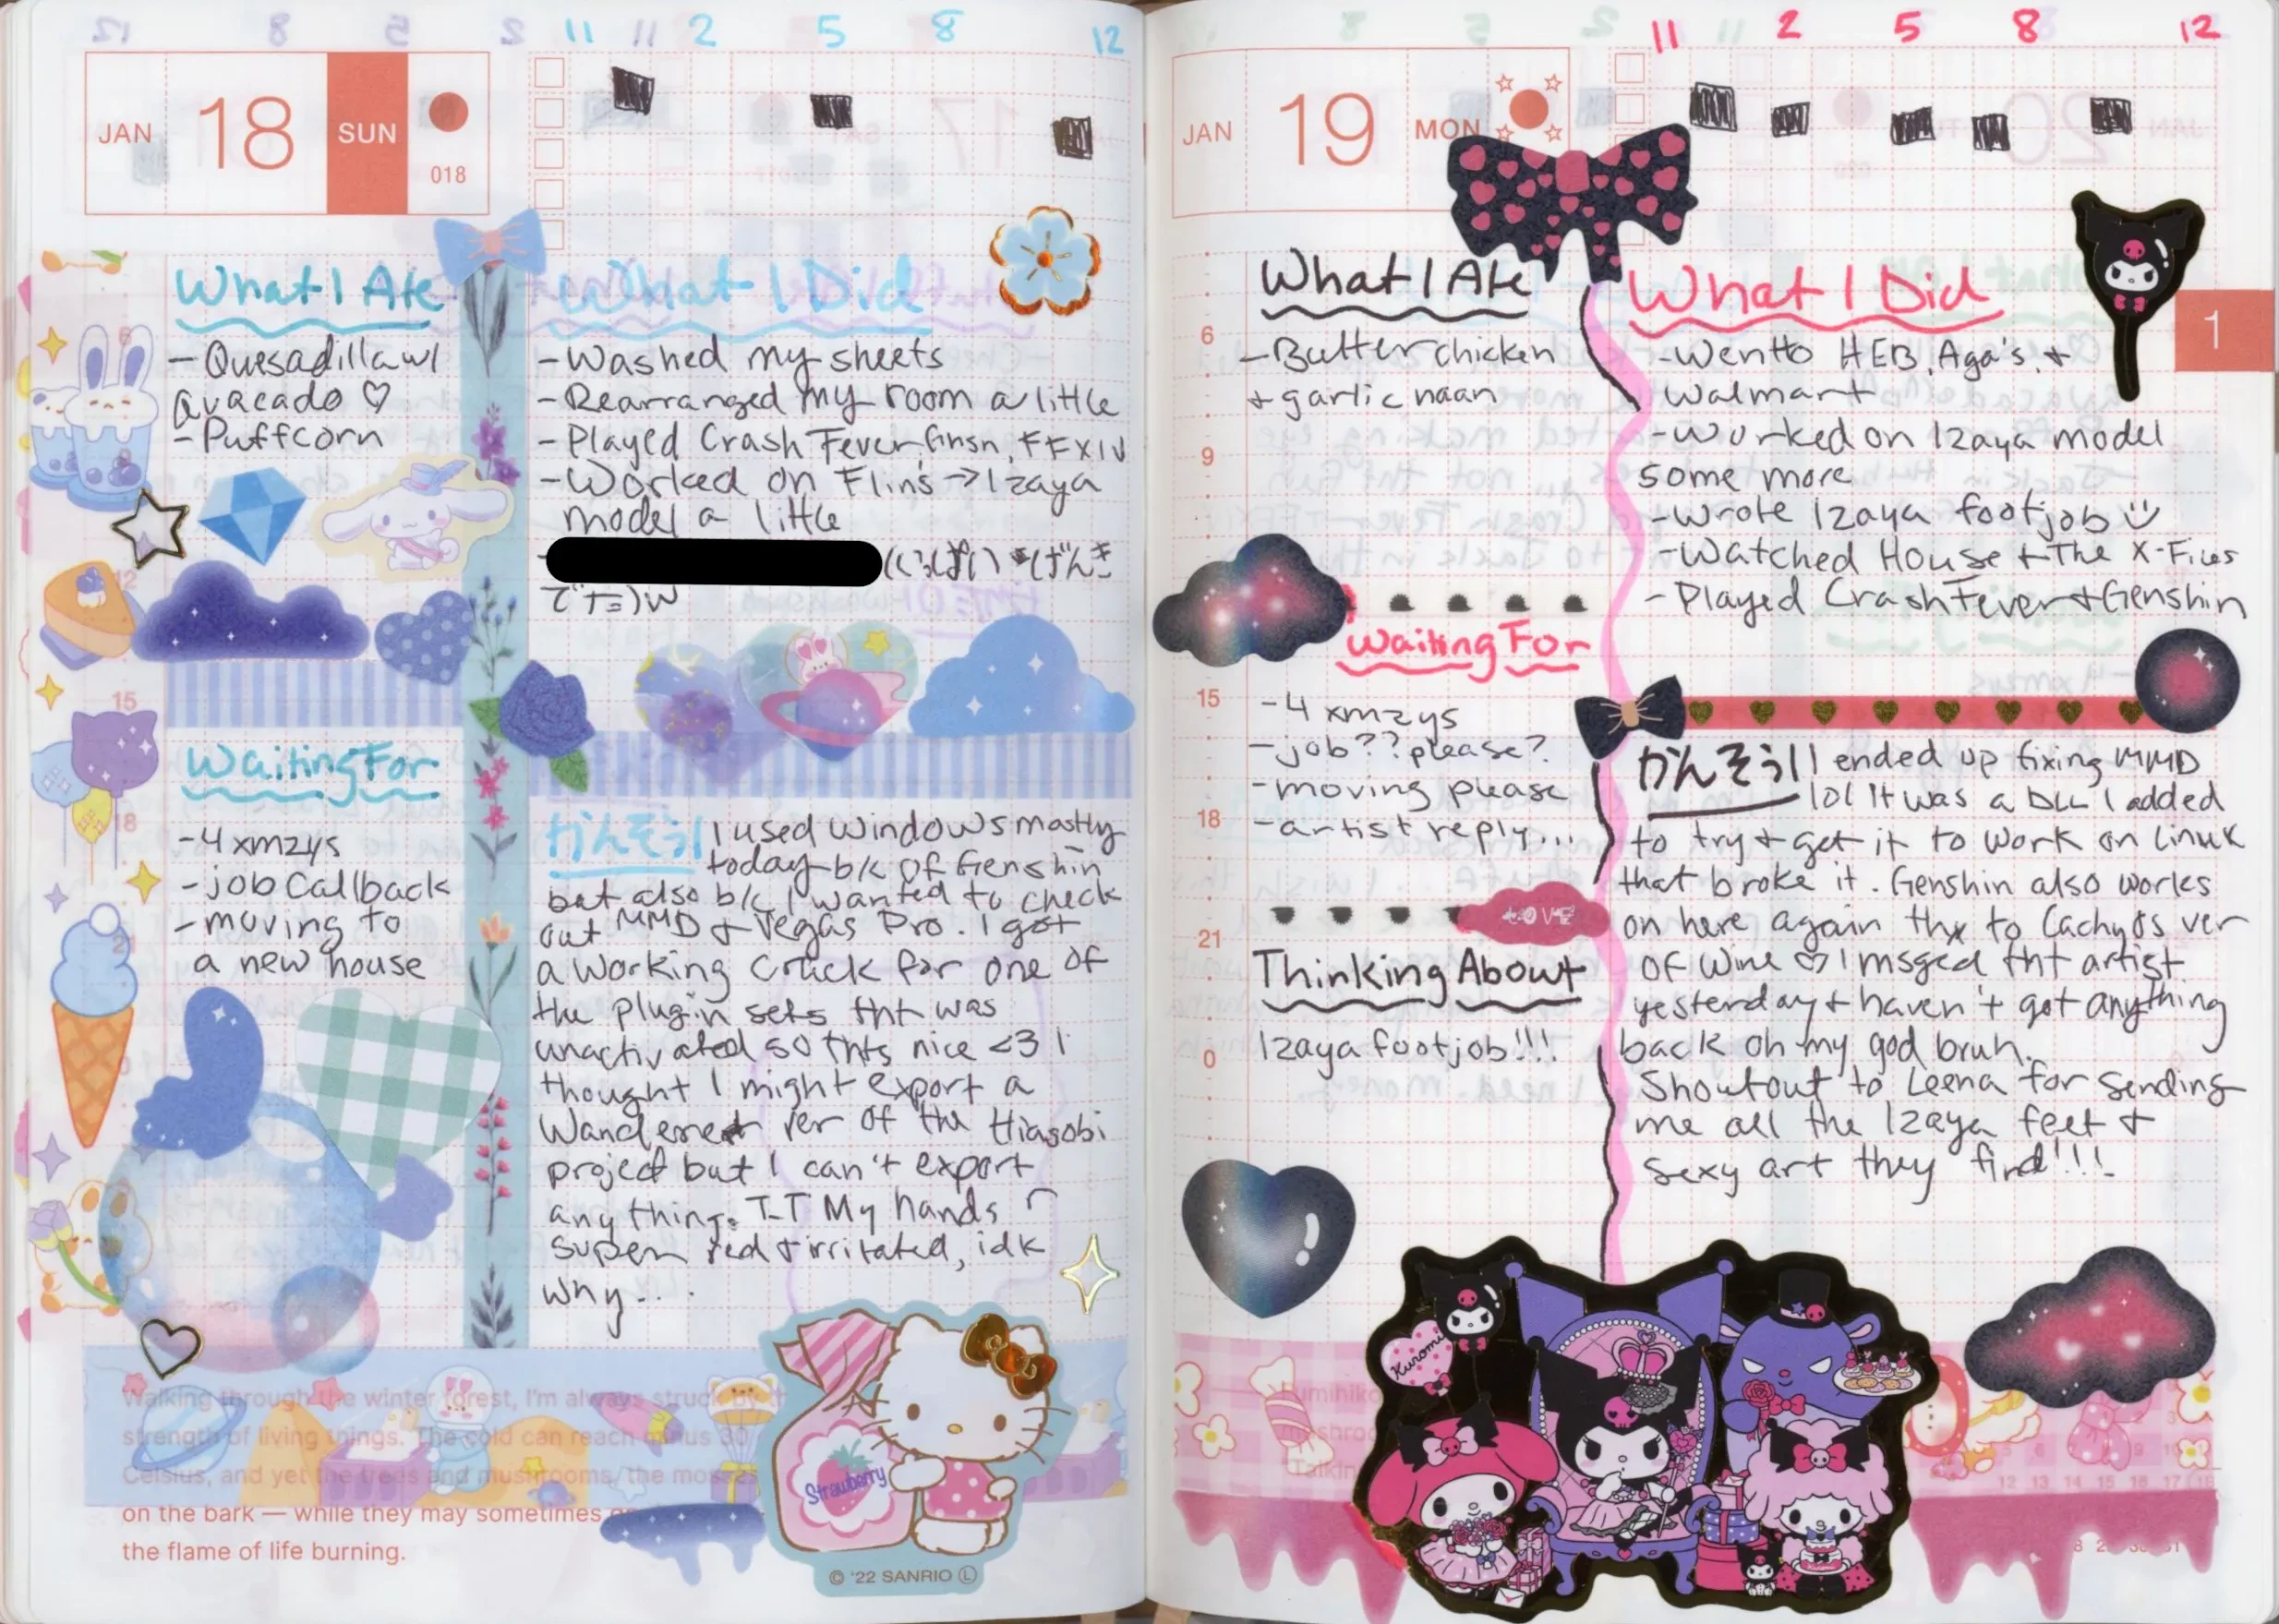 11 2 5 8 12
JAN 18 SUN 018
What I Ate
- Quesadilla w/
avacado ♡
- Puffcorn
What I Did
- Washed my sheets
- Rearranged my room a little
- Played Crash Fever, Gnsn, FFXIV
- Worked on Flins → Izaya
model a little
Waiting For
- 4 xmzys
- job callback
- moving to
a new house
かんそう! I used Windows mostly
today b/c of Genshin
but also b/c I wanted to check
out MMD + Vegas Pro. I got
a working crack for one of
the plugin sets tht was
unactivated so thts nice <3 I
thought I might export a
Wanderer ver of the Hiasobi
project but I can't export
anything. T-T My hands r
super red + irritated, idk
why...
Walking through the winter forest, I'm always struck by t
strength of living things. The cold can reach minus 30
Celsius, and yet the trees and mushrooms, the mosses
on the bark — while they may sometimes
the flame of life burning.
Strawberry
© '22 SANRIO Ⓛ
11 2 5 8 12
JAN 19 MON
1
What I Ate
- Butter chicken
+ garlic naan
What I Did
- Went to HEB, Aga's, +
Walmart
- Worked on Izaya model
some more
- Wrote Izaya footjob
- Watched House + The X-Files
- Played Crash Fever + Genshin
6
9
15
18
21
0
Waiting For
- 4 xmzys
- job?? please?
- moving please
- artist reply...
LOVE
Thinking About
Izaya footjob!!!
かんそう! I ended up fixing MMD
lol It was a DLL I added
to try + get it to work on Linux
that broke it. Genshin also works
on here again thx to CachyOS ver
of Wine ♡ I msged tht artist
yesterday + haven't got anything
back oh my god bruh.
Shoutout to Leena for sending
me all the Izaya feet +
sexy art they find!!!
Kuromi